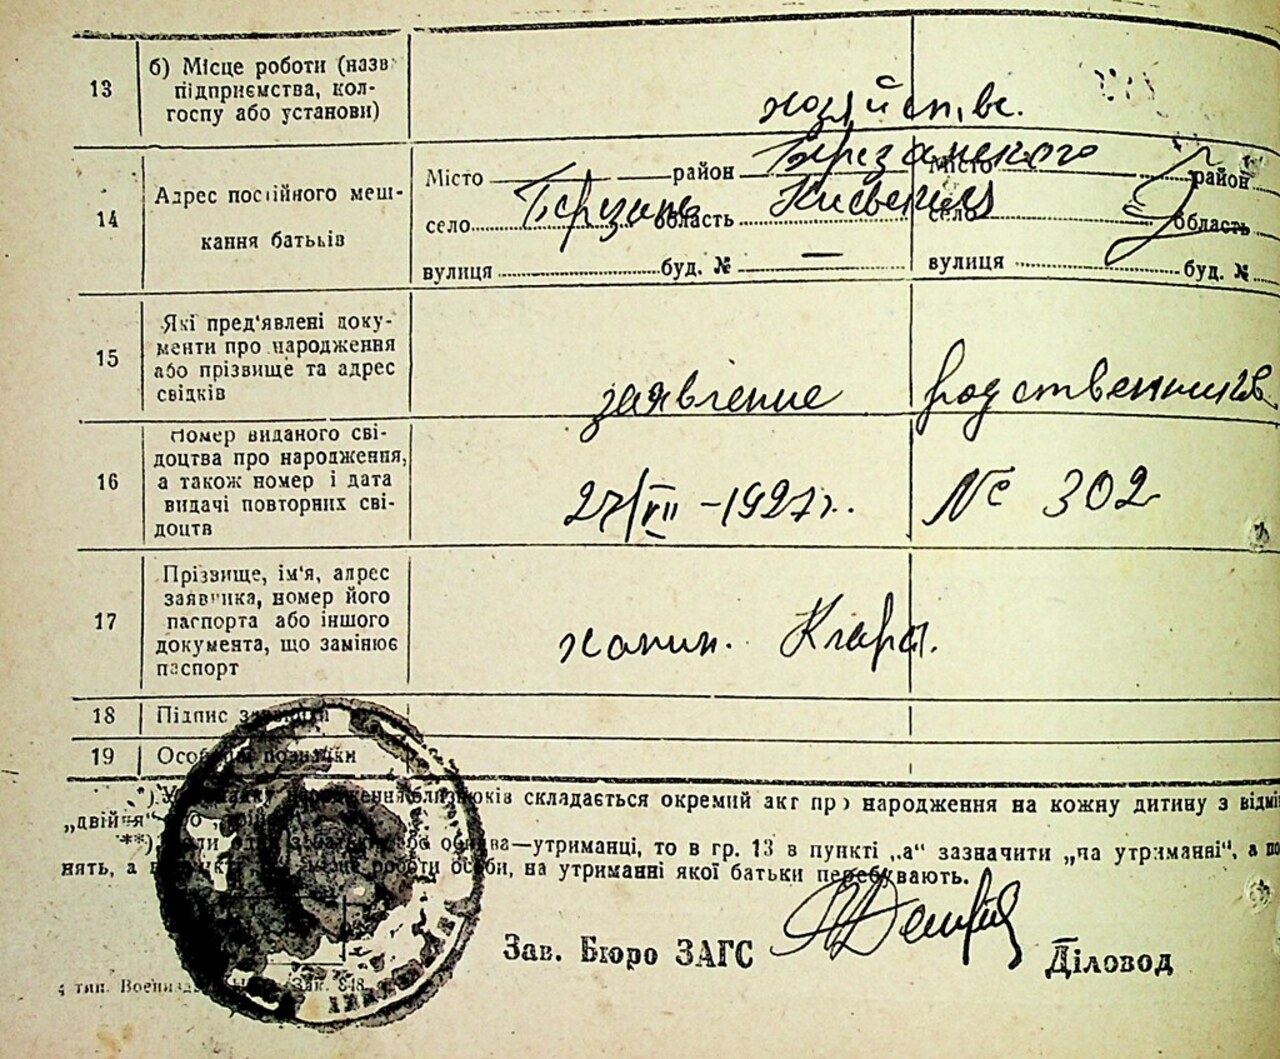 13
б) Місце роботи (назв
підприємства, кол-
госпу або установи)
хозяйстве.
14
Адрес постійного меш-
кання батьків
Місто район Березанского Місто район
село Березань область Киевский село область
вулиця буд. № — вулиця буд. №
15
Які пред'явлені доку-
менти про народження
або прізвище та адрес
свідків
заявление родственников
16
Номер виданого сві-
доцтва про народження,
а також номер і дата
видачі повторних сві-
доцтв
27/VII -1927г. № 302
17
Прізвище, ім'я, адрес
заявника, номер його
паспорта або іншого
документа, що замінює
паспорт
Клара.
18
Підпис
19
позначки
близнюків складається окремий акт про народження на кожну дитину з відмі
„двійня"
**) або обидва—утриманці, то в гр. 13 в пункті „а" зазначити „на утриманні", а по
нять, а роботи особи, на утриманні якої батьки перебувають.
Зав. Бюро ЗАГС Діловод
4 тип. Зак. 848.